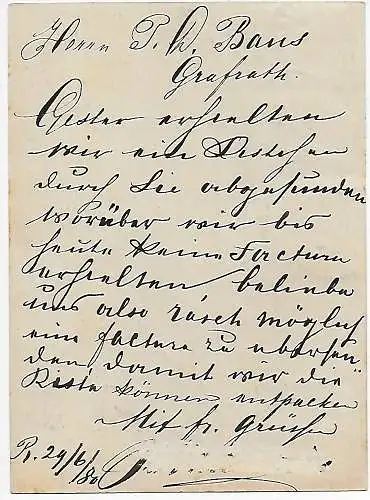 Herrn P. D. Baus
Grafrath.
Gester erhielten
wir ein Kistchen
durch Sie abgesunden
worüber wir bis
heute keine Factura
erhielten beliebe
uns also rasch möglich
eine factura zu übersen-
den damit wir die
Kiste können entpacken
Mit fr. Grüssen
R. 29/6/80